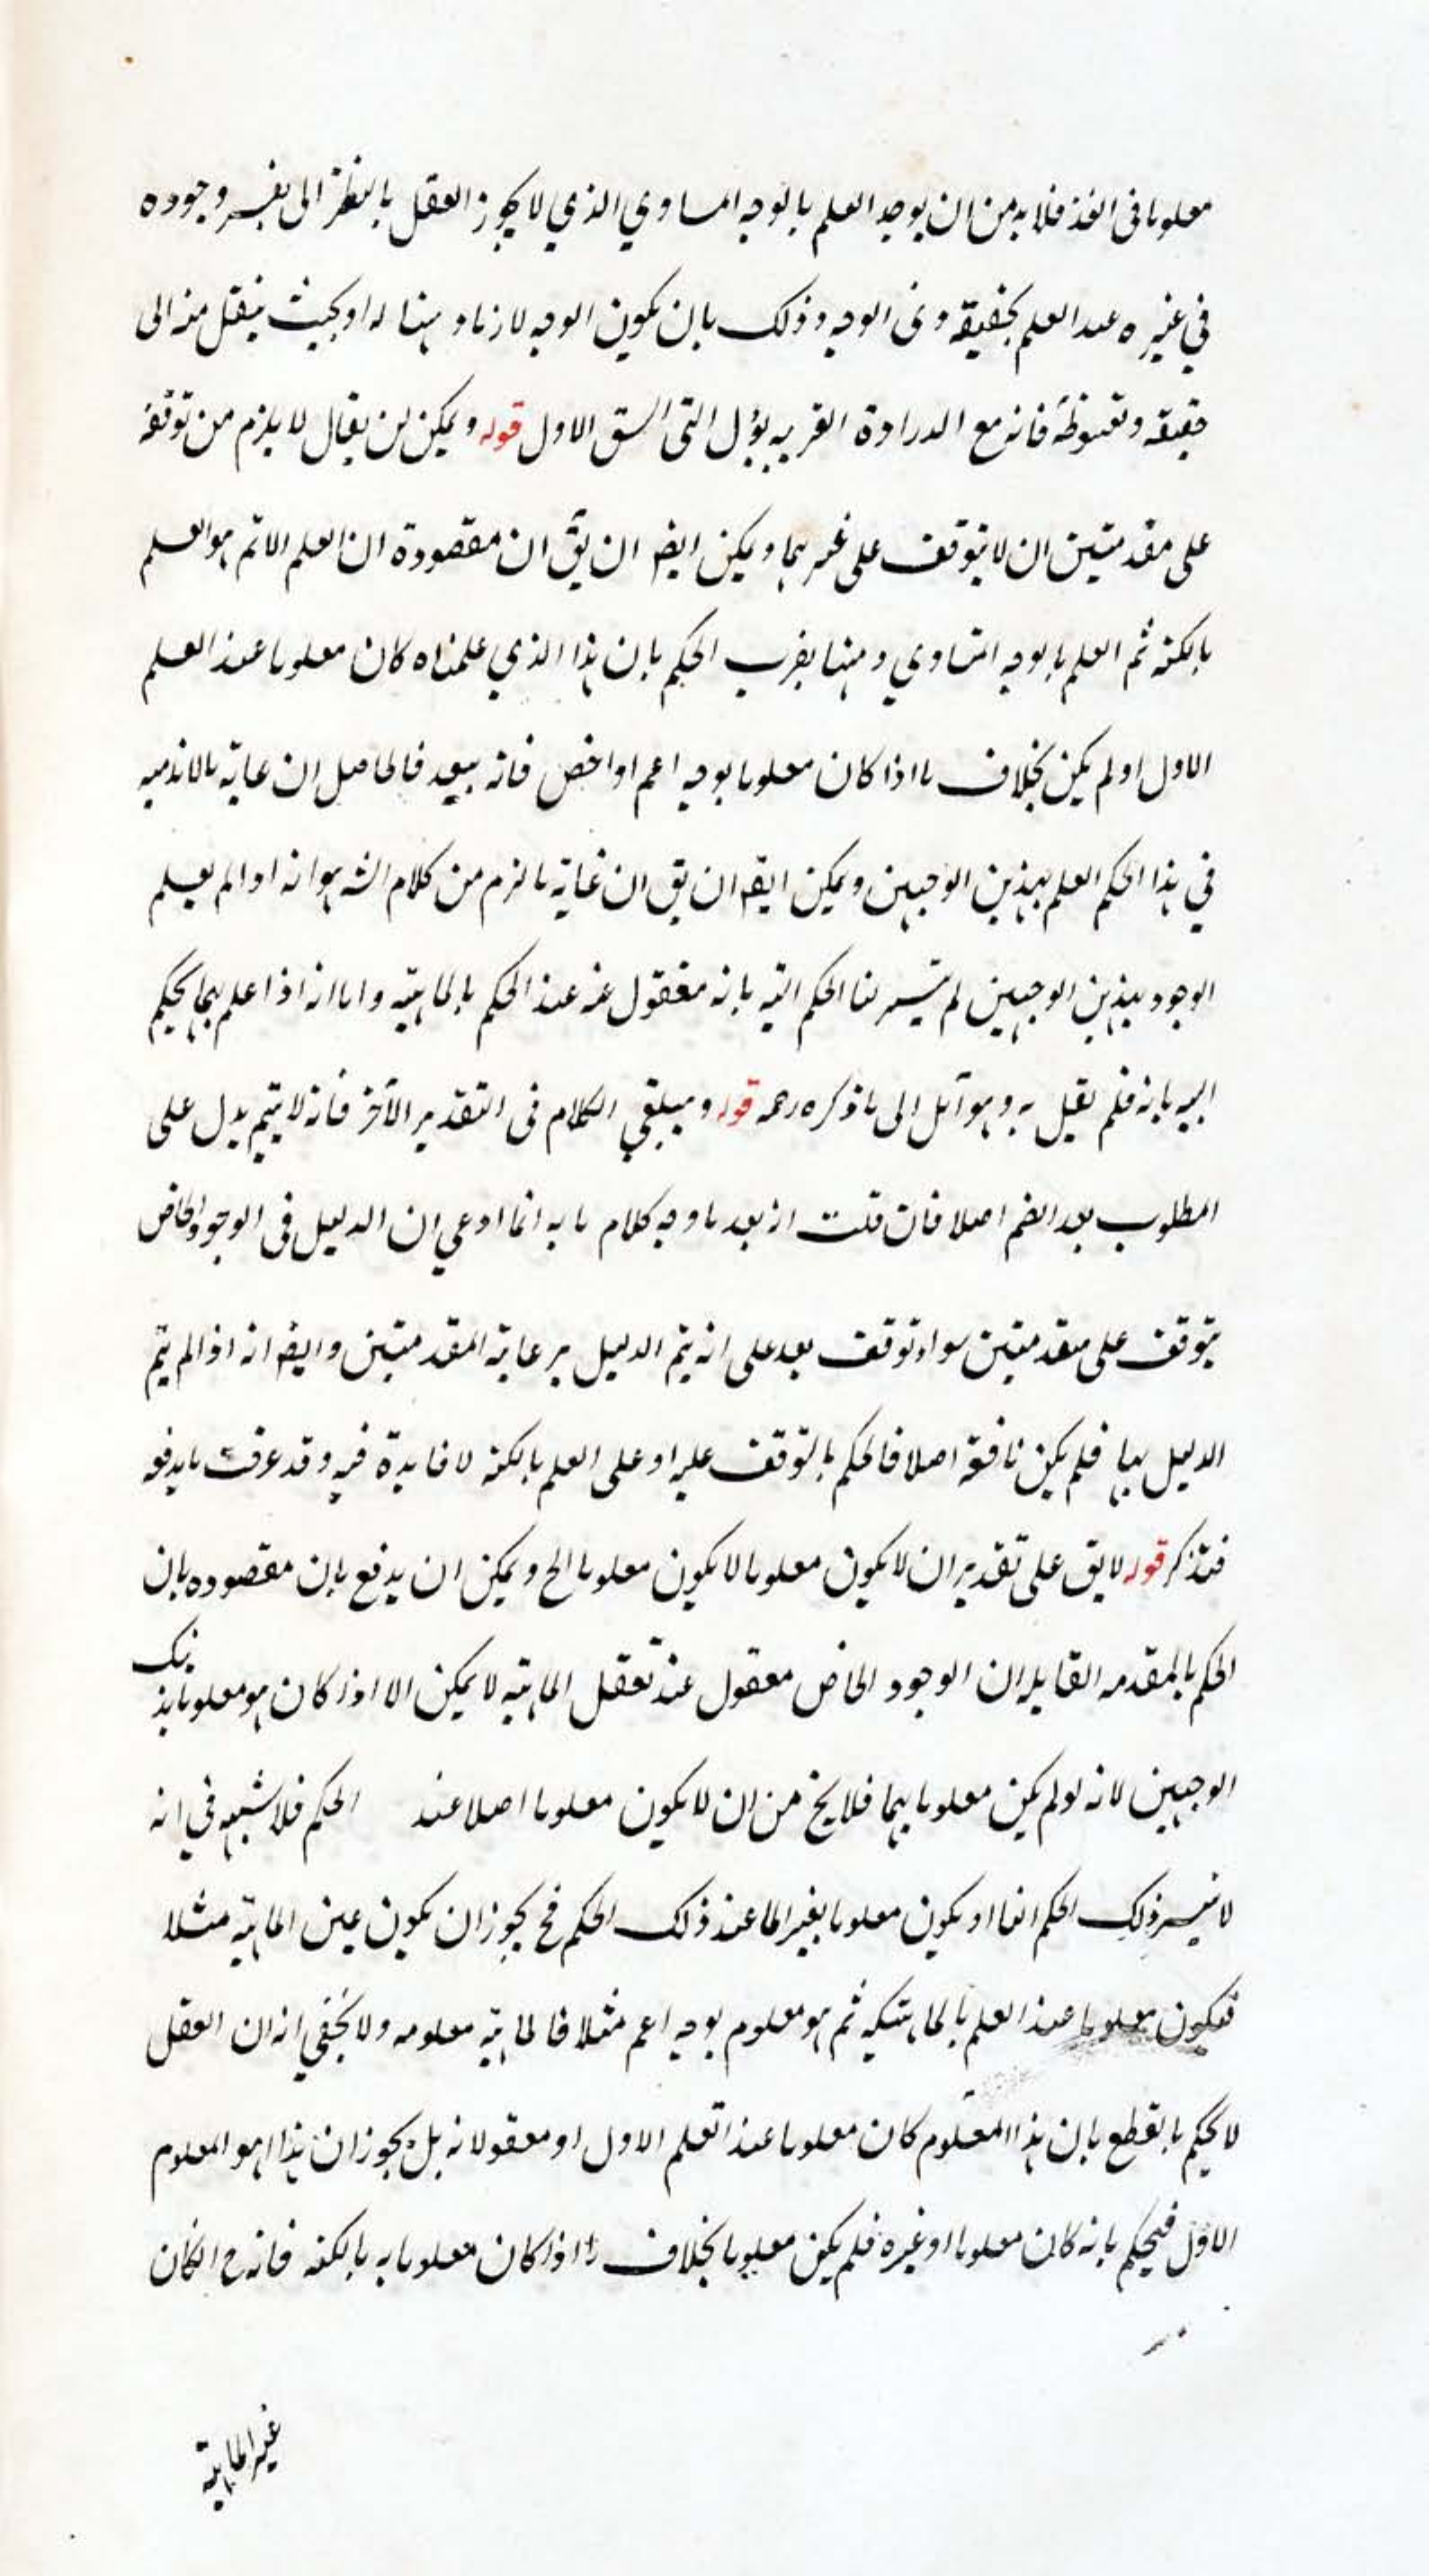 معلوما فى الغد فلا بد من ان يوجد العلم بالوجه المساوي الذي لا يجوز العقل بالنظر الى نفسه وجوده
في غيره عند العلم بحقيقة وفى الوجه وذلك بان يكون الوجه لازما و بينا له او بحيث ينقل منه الى
حقيقة فانه مع القريبه يؤل الى الشق الاول قوله ويمكن ان يقال لا يلزم من توقفه
على مقدمتين ان لا يتوقف على غيرهما ويمكن ايضا ان يق ان مقصوده ان العلم الاتم هو العلم
بالكنه ثم العلم بالوجه المساوي وهنا يقرب الحكم بان هذا الذي علمناه كان معلوما عند العلم
الاول او لم يكن بخلاف ما اذا كان معلوما بوجه اعم او اخص فانه بعيد فالحاصل ان غاية
في هذا الحكم العلم بهذين الوجهين ويمكن ايضا ان يق ان غاية ما لزم من كلام الشه هو انه اذا لم يعلم
الوجود بهذين الوجهين لم يتيسر لنا الحكم البته بانه مغفول عنه عند الحكم بالماهية واما انه اذا علم بهما يحكم
البته بانه فلم نقل به وهو آئل الى ما ذكره رحمه قوله ويبقى الكلام فى التقدير الآخر فانه لا يتم بدل على
المطلوب بعد الضم اصلا فان قلت اذ بعد ما وجه كلام ما به انما ادعي ان الدليل فى الوجود الخاص
يتوقف على مقدمتين سواء توقف بعد على انه يتم الدليل برعاية المقدمتين وايضا انه اذا لم يتم
الدليل بها فلم يكن نافعة اصلا فالحكم بالتوقف عليه او على العلم بالكنه لا فايدة فيه وقد عرفت ما يدفعه
فتذكر قوله لا يق على تقدير ان لا يكون معلوما لا يكون معلوما الخ ويمكن ان يدفع بان مقصوده بان
الحكم بالمقدمه القايله ان الوجود الخاص معقول عند تعقل الماهية لا يمكن الا اذا كان هو معلوما بذينك
الوجهين لانه لو لم يكن معلوما بهما فلا يخ من ان لا يكون معلوما اصلا عند الحكم فلا شبهه في انه
لا يتيسر ذلك الحكم او يكون معلوما بغيرهما عند ذلك الحكم فح يجوز ان يكون عين الماهية مثلا
فيكون معلوما عند العلم ثم هو معلوم بوجه اعم مثلا فالماهية معلومه ولا يخفى انه ان العقل
لا يحكم بالقطع بان هذا المعلوم كان معلوما عند التعلم الاول او معقولا به بل يجوز ان هذا هو المعلوم
الاول فيحكم بانه كان معلوما او غيره فلم يكن معلوما بخلاف ما اذا كان معلوما به بالكنه فانه ح ان كان
غير الماهية